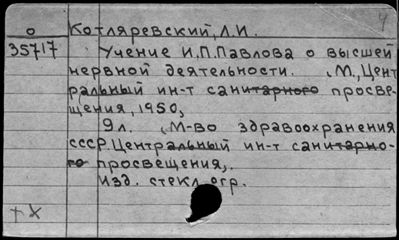 о Котляревский, Л.И.
35717 Учение И.П.Павлова о высшей
нервной деятельности. М., Цент
ральный ин-т санитарного просве-
щения, 1950,
9 л. М-во здравоохранения
СССР. Центральный ин-т санитарно-
го просвещения,.
Изд. стекл. огр.